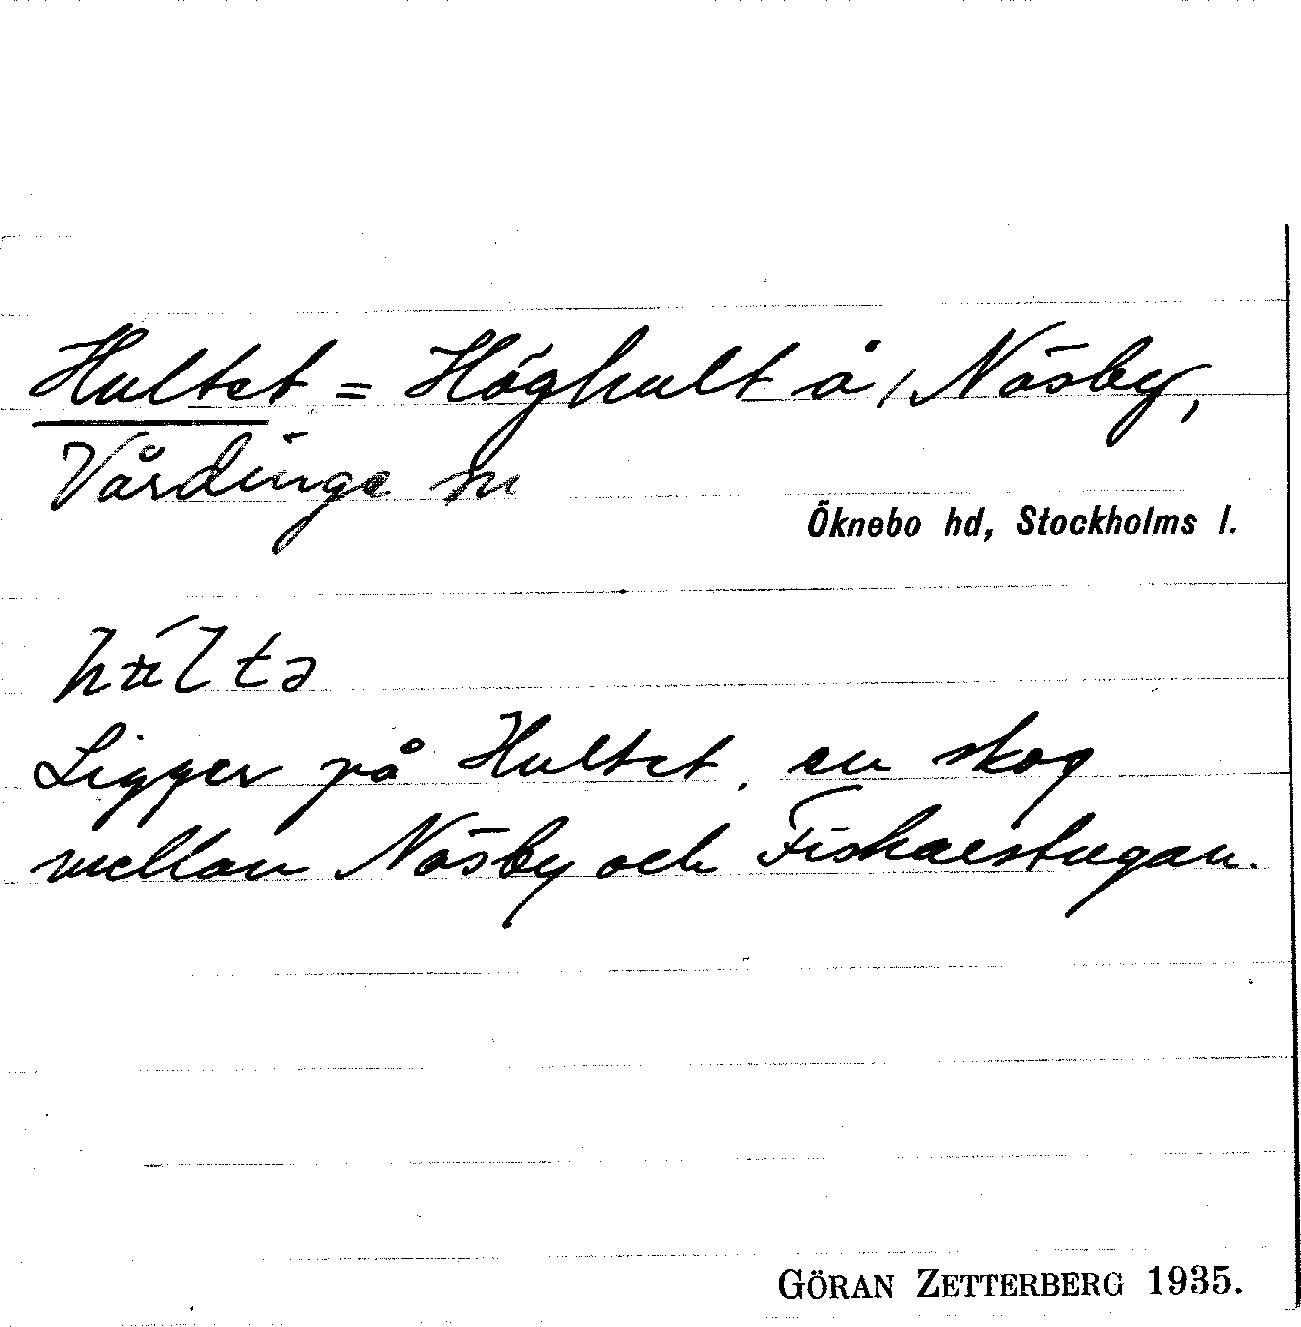 Hultet = Höghult å, Näsby,
Vårdinge sn
Öknebo hd, Stockholms l.
Ligger på Hultet, en skog
mellan Näsby och Fiskarstugan.
GÖRAN ZETTERBERG 1935.